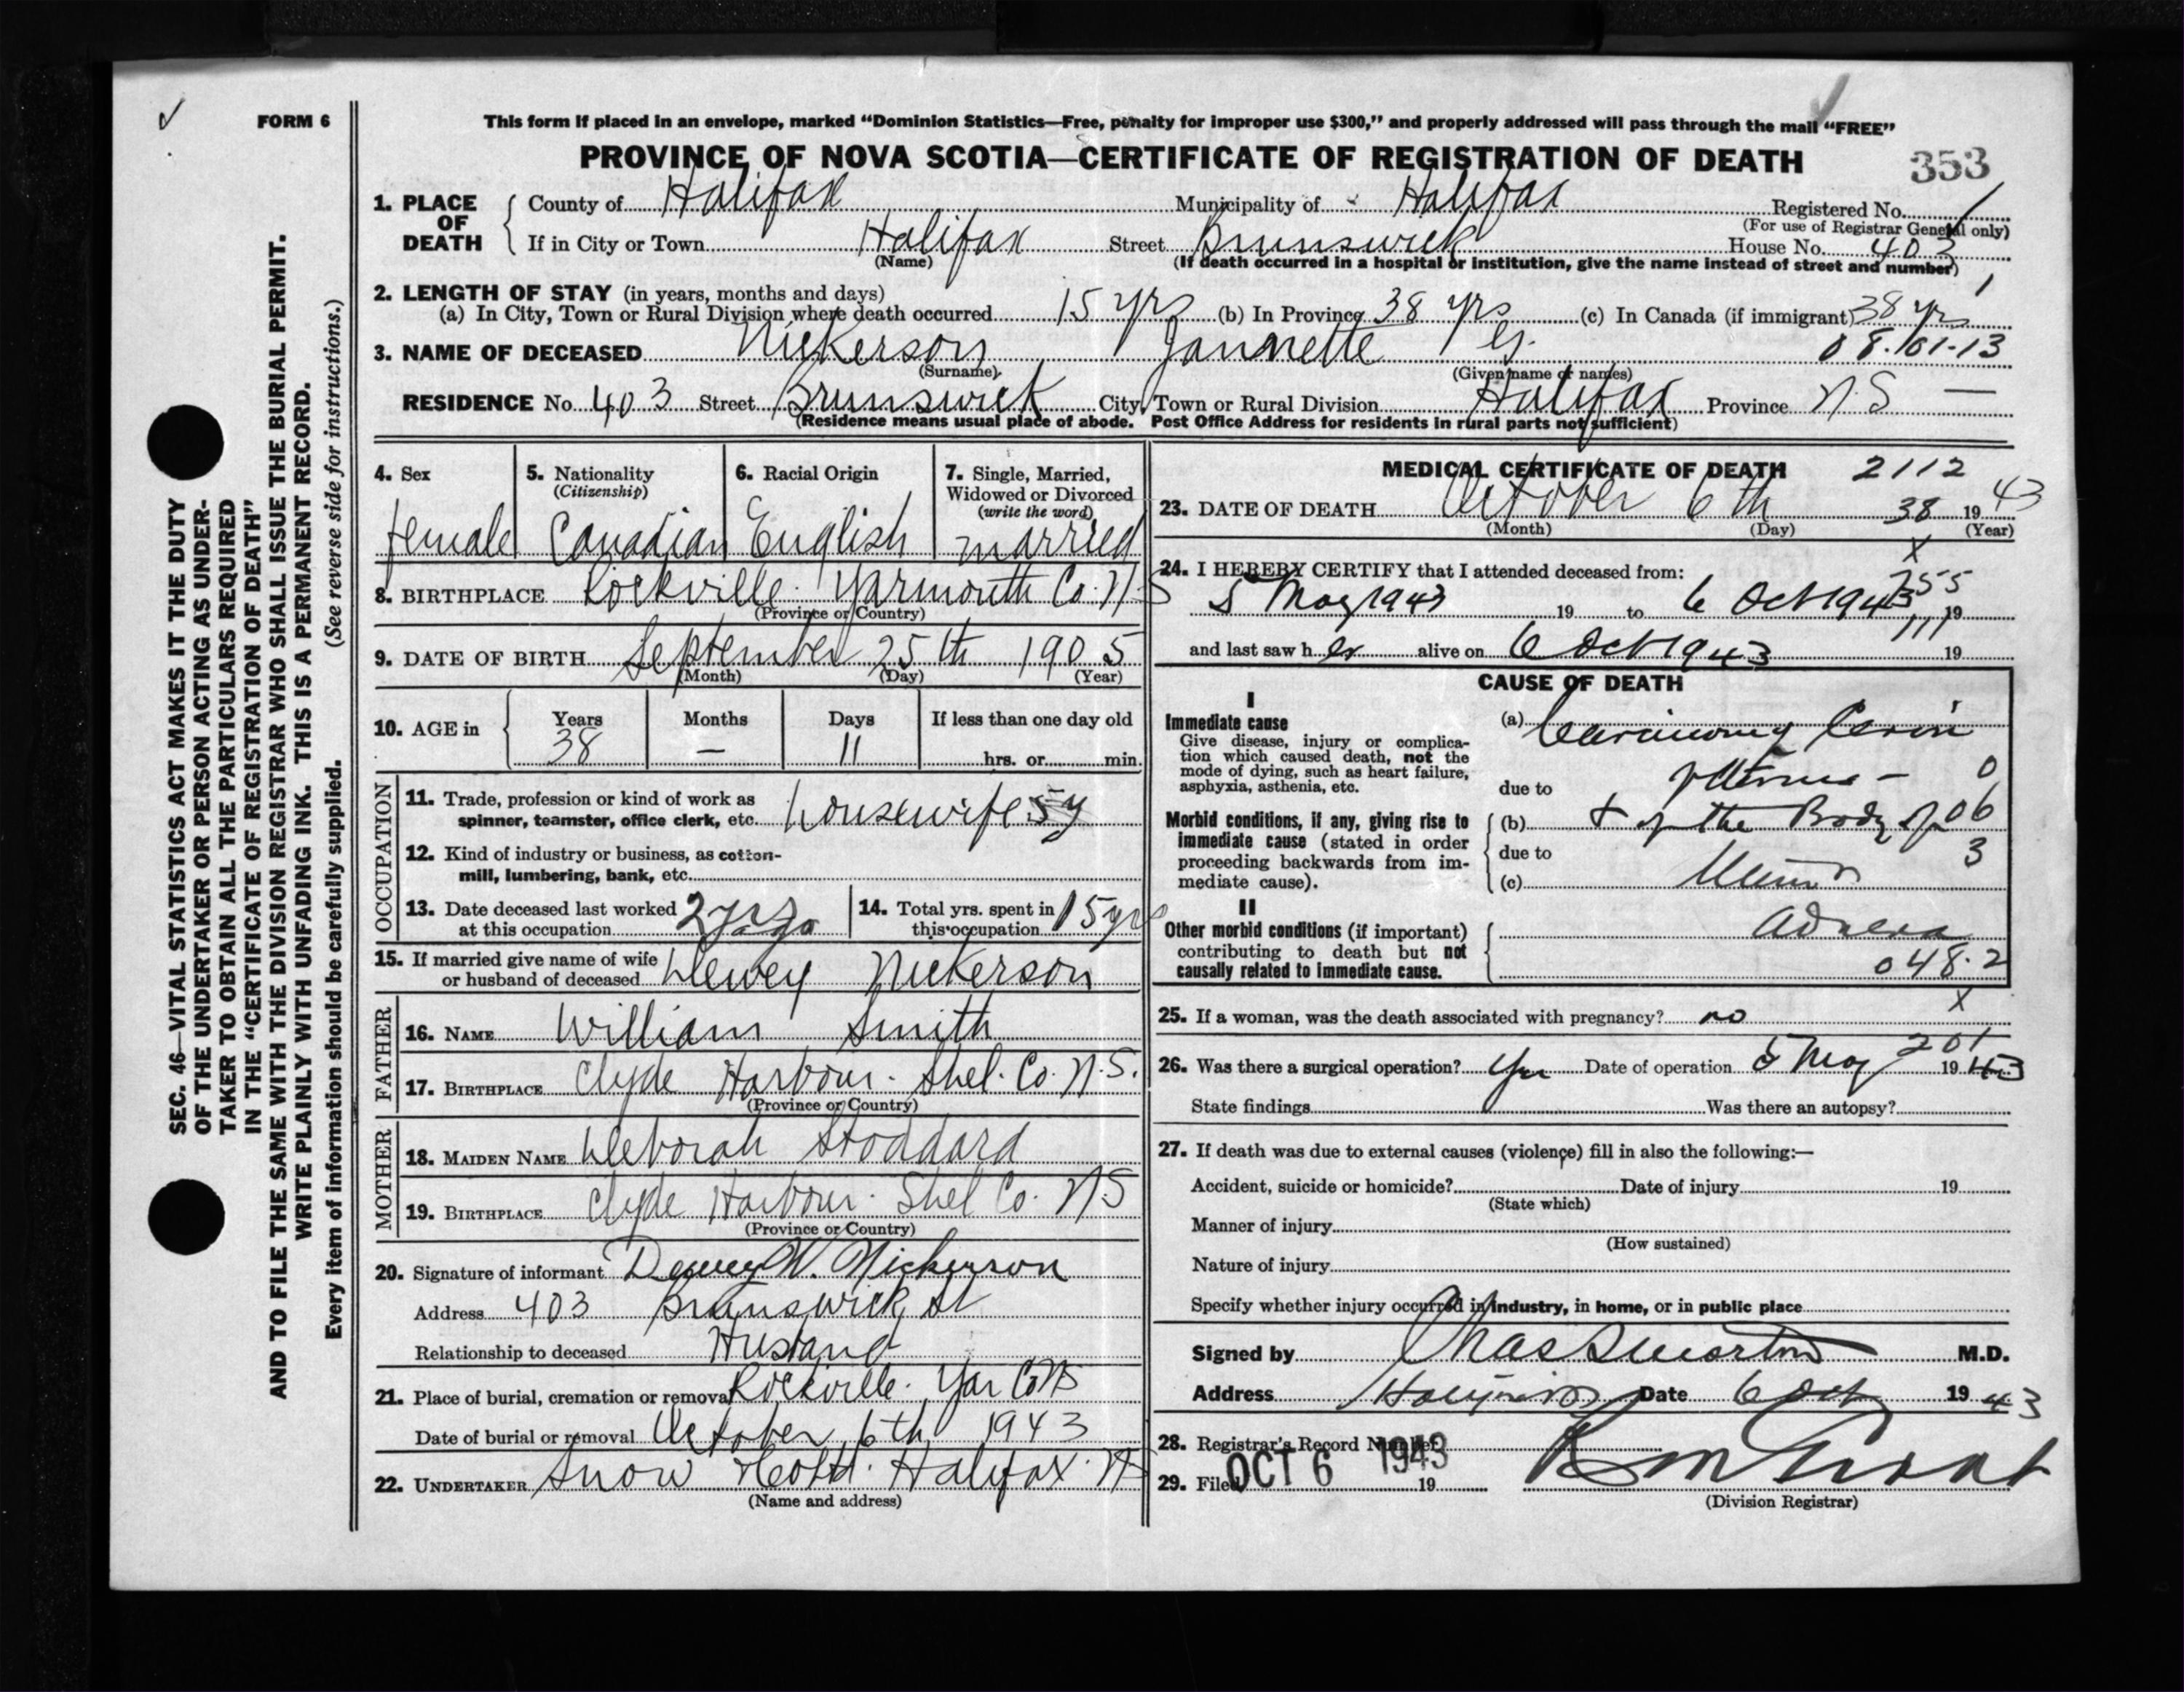 FORM 6
This form if placed in an envelope, marked “Dominion Statistics—Free, penalty for improper use $300,” and properly addressed will pass through the mail “FREE”
PROVINCE OF NOVA SCOTIA—CERTIFICATE OF REGISTRATION OF DEATH
353
1. PLACE OF DEATH
County of Halifax Municipality of Halifax Registered No.
(For use of Registrar General only)
If in City or Town Halifax Street Brunswick House No. 403
(Name) (If death occurred in a hospital or institution, give the name instead of street and number)
2. LENGTH OF STAY (in years, months and days)
(a) In City, Town or Rural Division where death occurred 15 yrs (b) In Province 38 yrs (c) In Canada (if immigrant) 38 yrs
3. NAME OF DECEASED Nickerson Jannette G. 08.161-13
(Surname) (Given name or names)
RESIDENCE No. 403 Street Brunswick City, Town or Rural Division Halifax Province N.S —
(Residence means usual place of abode. Post Office Address for residents in rural parts not sufficient)
4. Sex
female
5. Nationality
(Citizenship)
Canadian
6. Racial Origin
English
7. Single, Married,
Widowed or Divorced
(write the word)
married
8. BIRTHPLACE Rockville. Yarmouth Co. N.S
(Province or Country)
9. DATE OF BIRTH September 25th 1905
(Month) (Day) (Year)
10. AGE in
Years Months Days If less than one day old
38 — 11 hrs. or min.
OCCUPATION
11. Trade, profession or kind of work as
spinner, teamster, office clerk, etc. housewife
12. Kind of industry or business, as cotton-
mill, lumbering, bank, etc.
13. Date deceased last worked
at this occupation
14. Total yrs. spent in
this occupation 15 yrs
15. If married give name of wife
or husband of deceased Dewey Nickerson
FATHER
16. NAME William Smith
17. BIRTHPLACE Clyde Harbour. Shel. Co. N.S.
(Province or Country)
MOTHER
18. MAIDEN NAME Deborah Stoddard
19. BIRTHPLACE Clyde Harbour. Shel Co. N.S
(Province or Country)
20. Signature of informant Dewey W. Nickerson
Address 403 Brunswick St
Relationship to deceased Husband
21. Place of burial, cremation or removal Rockville. Yar Co NS
Date of burial or removal October 6th 1943
22. UNDERTAKER Snow & Co Ltd. Halifax. NS
(Name and address)
MEDICAL CERTIFICATE OF DEATH 2112
23. DATE OF DEATH October 6th 38 1943
(Month) (Day) (Year)
x
24. I HEREBY CERTIFY that I attended deceased from:
5 May 1943 19 to 6 Oct 1943 19
and last saw her alive on 6 Oct 1943 19
CAUSE OF DEATH
I
Immediate cause
Give disease, injury or complica-
tion which caused death, not the
mode of dying, such as heart failure,
asphyxia, asthenia, etc.
(a) Carcinoma Cervix
due to Uterus —
Morbid conditions, if any, giving rise to
immediate cause (stated in order
proceeding backwards from im-
mediate cause).
(b) + of the Body of 06
due to 3
(c) Uterus
II
Other morbid conditions (if important)
contributing to death but not
causally related to immediate cause.
048.2
25. If a woman, was the death associated with pregnancy? no x
201
26. Was there a surgical operation? Yes Date of operation 5 May 1943
State findings Was there an autopsy?
27. If death was due to external causes (violence) fill in also the following:—
Accident, suicide or homicide? Date of injury 19
(State which)
Manner of injury
(How sustained)
Nature of injury
Specify whether injury occurred in industry, in home, or in public place
Signed by M.D.
Address Halifax Date 6 Oct 1943
28. Registrar's Record Number
29. Filed OCT 6 1943 19
(Division Registrar)
SEC. 46—VITAL STATISTICS ACT MAKES IT THE DUTY
OF THE UNDERTAKER OR PERSON ACTING AS UNDER-
TAKER TO OBTAIN ALL THE PARTICULARS REQUIRED
IN THE “CERTIFICATE OF REGISTRATION OF DEATH”
AND TO FILE THE SAME WITH THE DIVISION REGISTRAR WHO SHALL ISSUE THE BURIAL PERMIT.
WRITE PLAINLY WITH UNFADING INK. THIS IS A PERMANENT RECORD.
Every item of information should be carefully supplied. (See reverse side for instructions.)